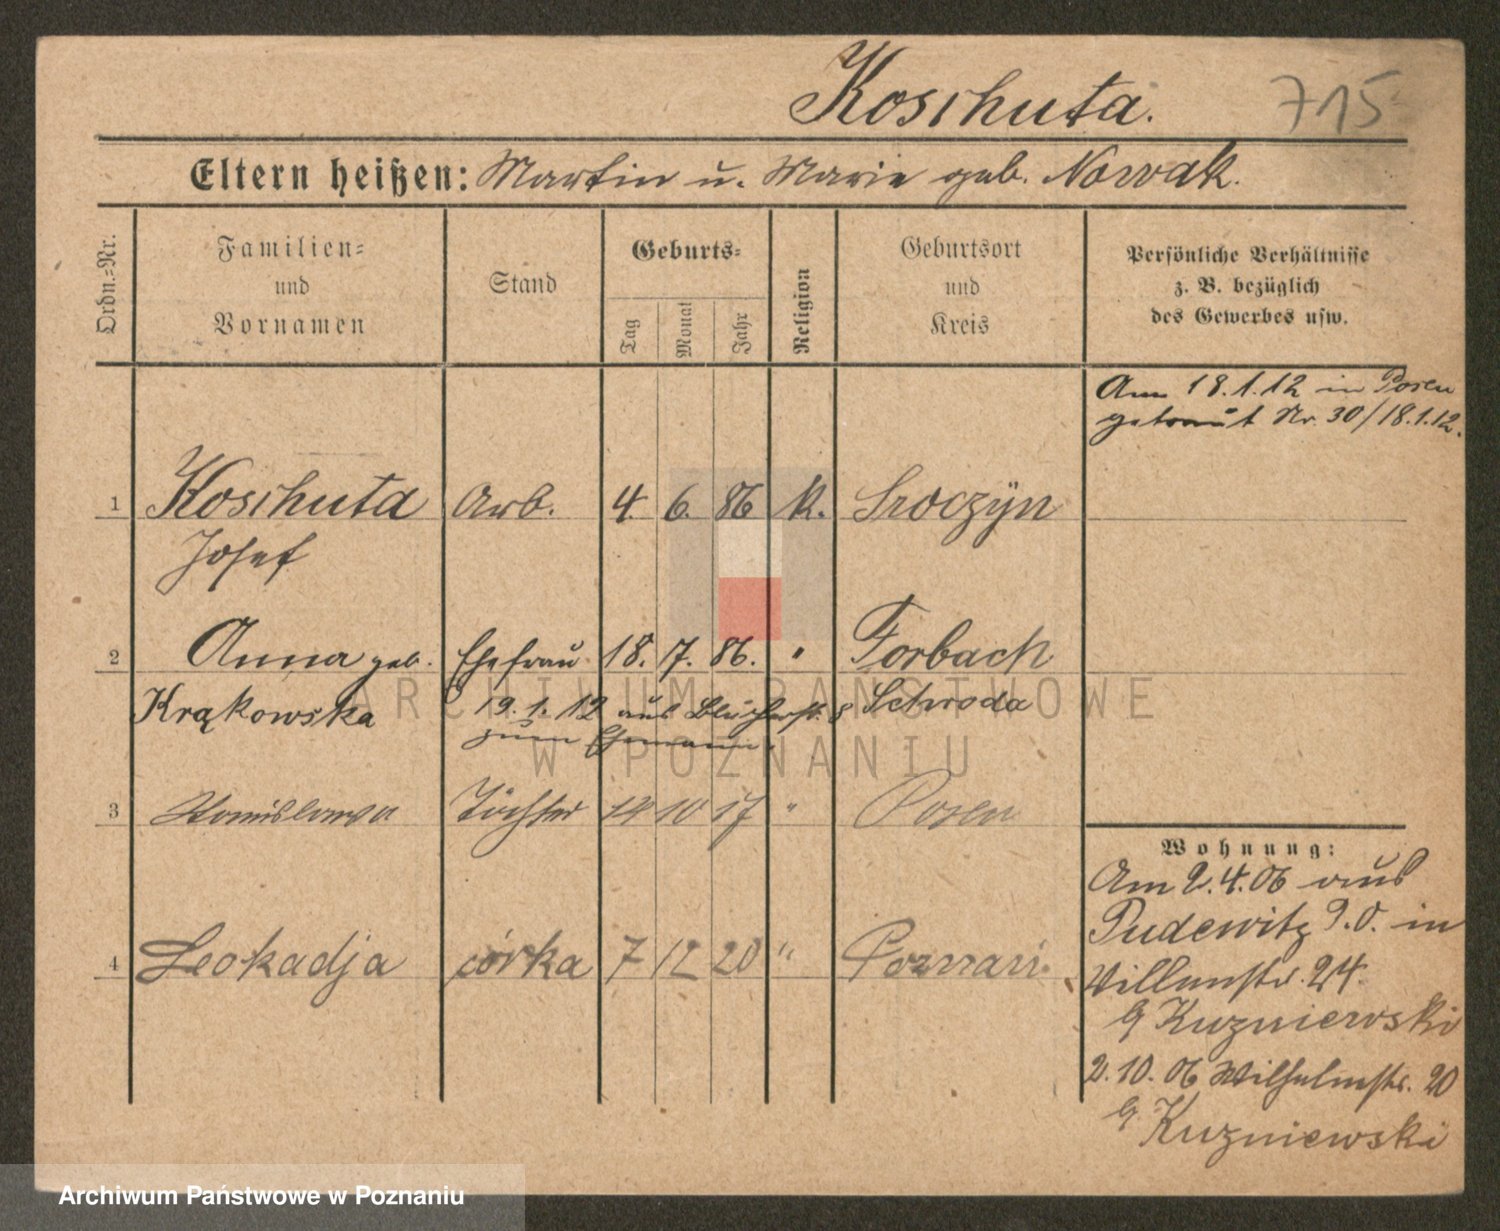 Koschuta. 715
Eltern heißen: Martin u. Marie geb. Nowak.
Ordn.-Nr.
Familien-
und
Vornamen
Stand
Geburts-
Tag
Monat
Jahr
Religion
Geburtsort
und
Kreis
Persönliche Verhältnisse
z. B. bezüglich
des Gewerbes usw.
Am 18.1.12 in Posen
getraut Nr. 30/18.1.12.
1 Koschuta Arb. 4. 6. 86 k. Sroczyn
Josef
2 Anna geb. Ehefrau 18. 7. 86. " Forbach
Krąkowska 19.1.12 aus Blücherstr. 8 Schroda
zum Ehemann.
3 Stanislawa Tochter 14 10 17 " Posen
4 Leokadja córka 7 12 20 " Poznań
Wohnung:
Am 2.4.06 aus
Pudewitz P.O. in
24.
G Kuzniewski
2.10.06 Wilhelmstr. 20
G. Kuzniewski
ARCHIWUM PAŃSTWOWE
W POZNANIU
Archiwum Państwowe w Poznaniu